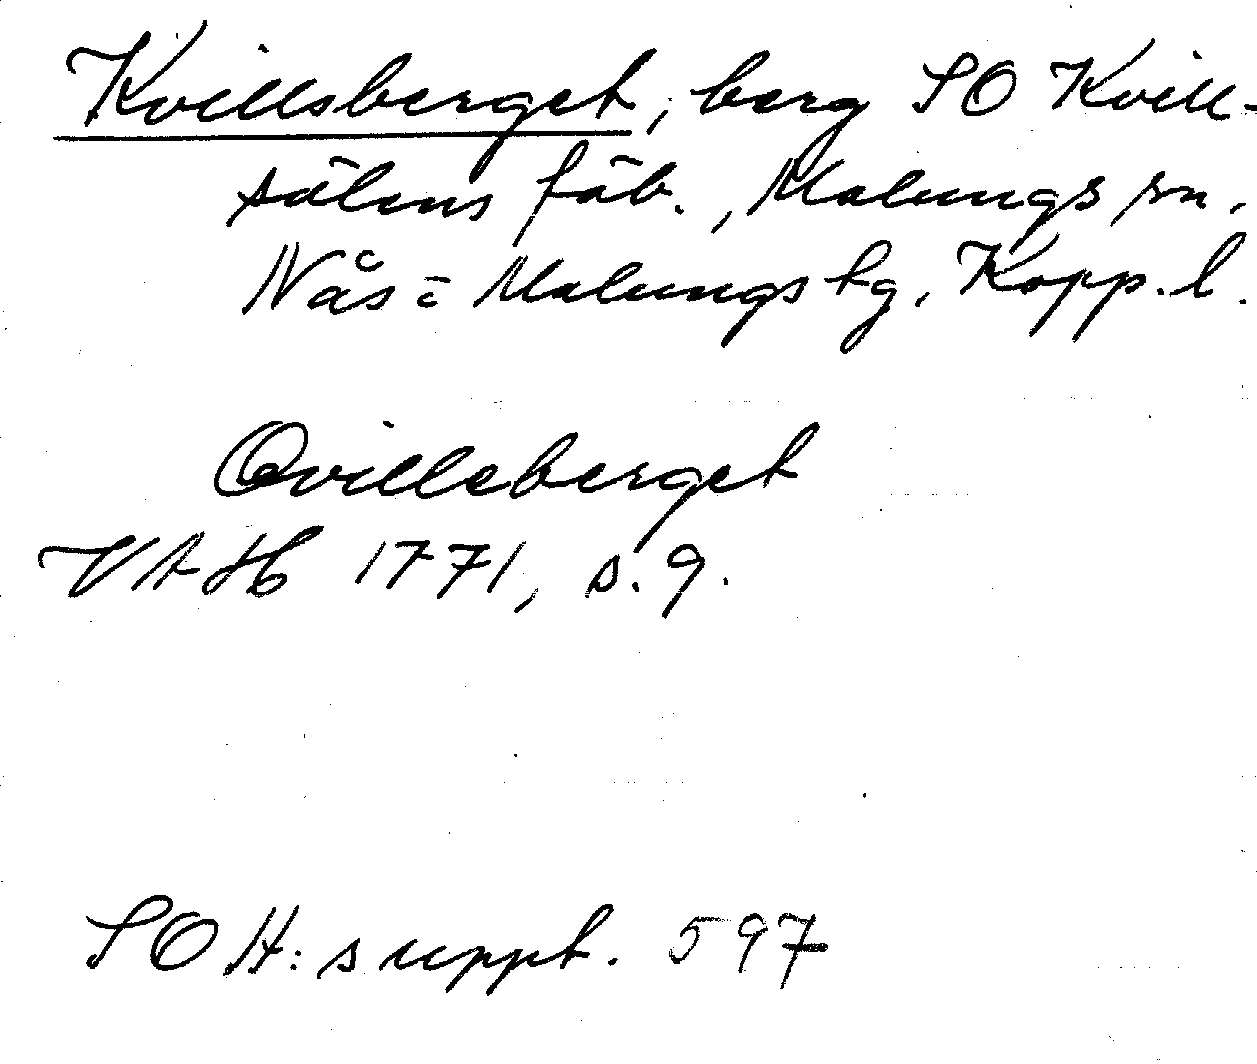 Kvillsberget, berg SO Kvill-
sälens fäb., Malungs sn,
Nås o Malungs tg, Kopp. l.
Qvilleberget
VAH 1771, s. 9.
SOH: suppt. 597